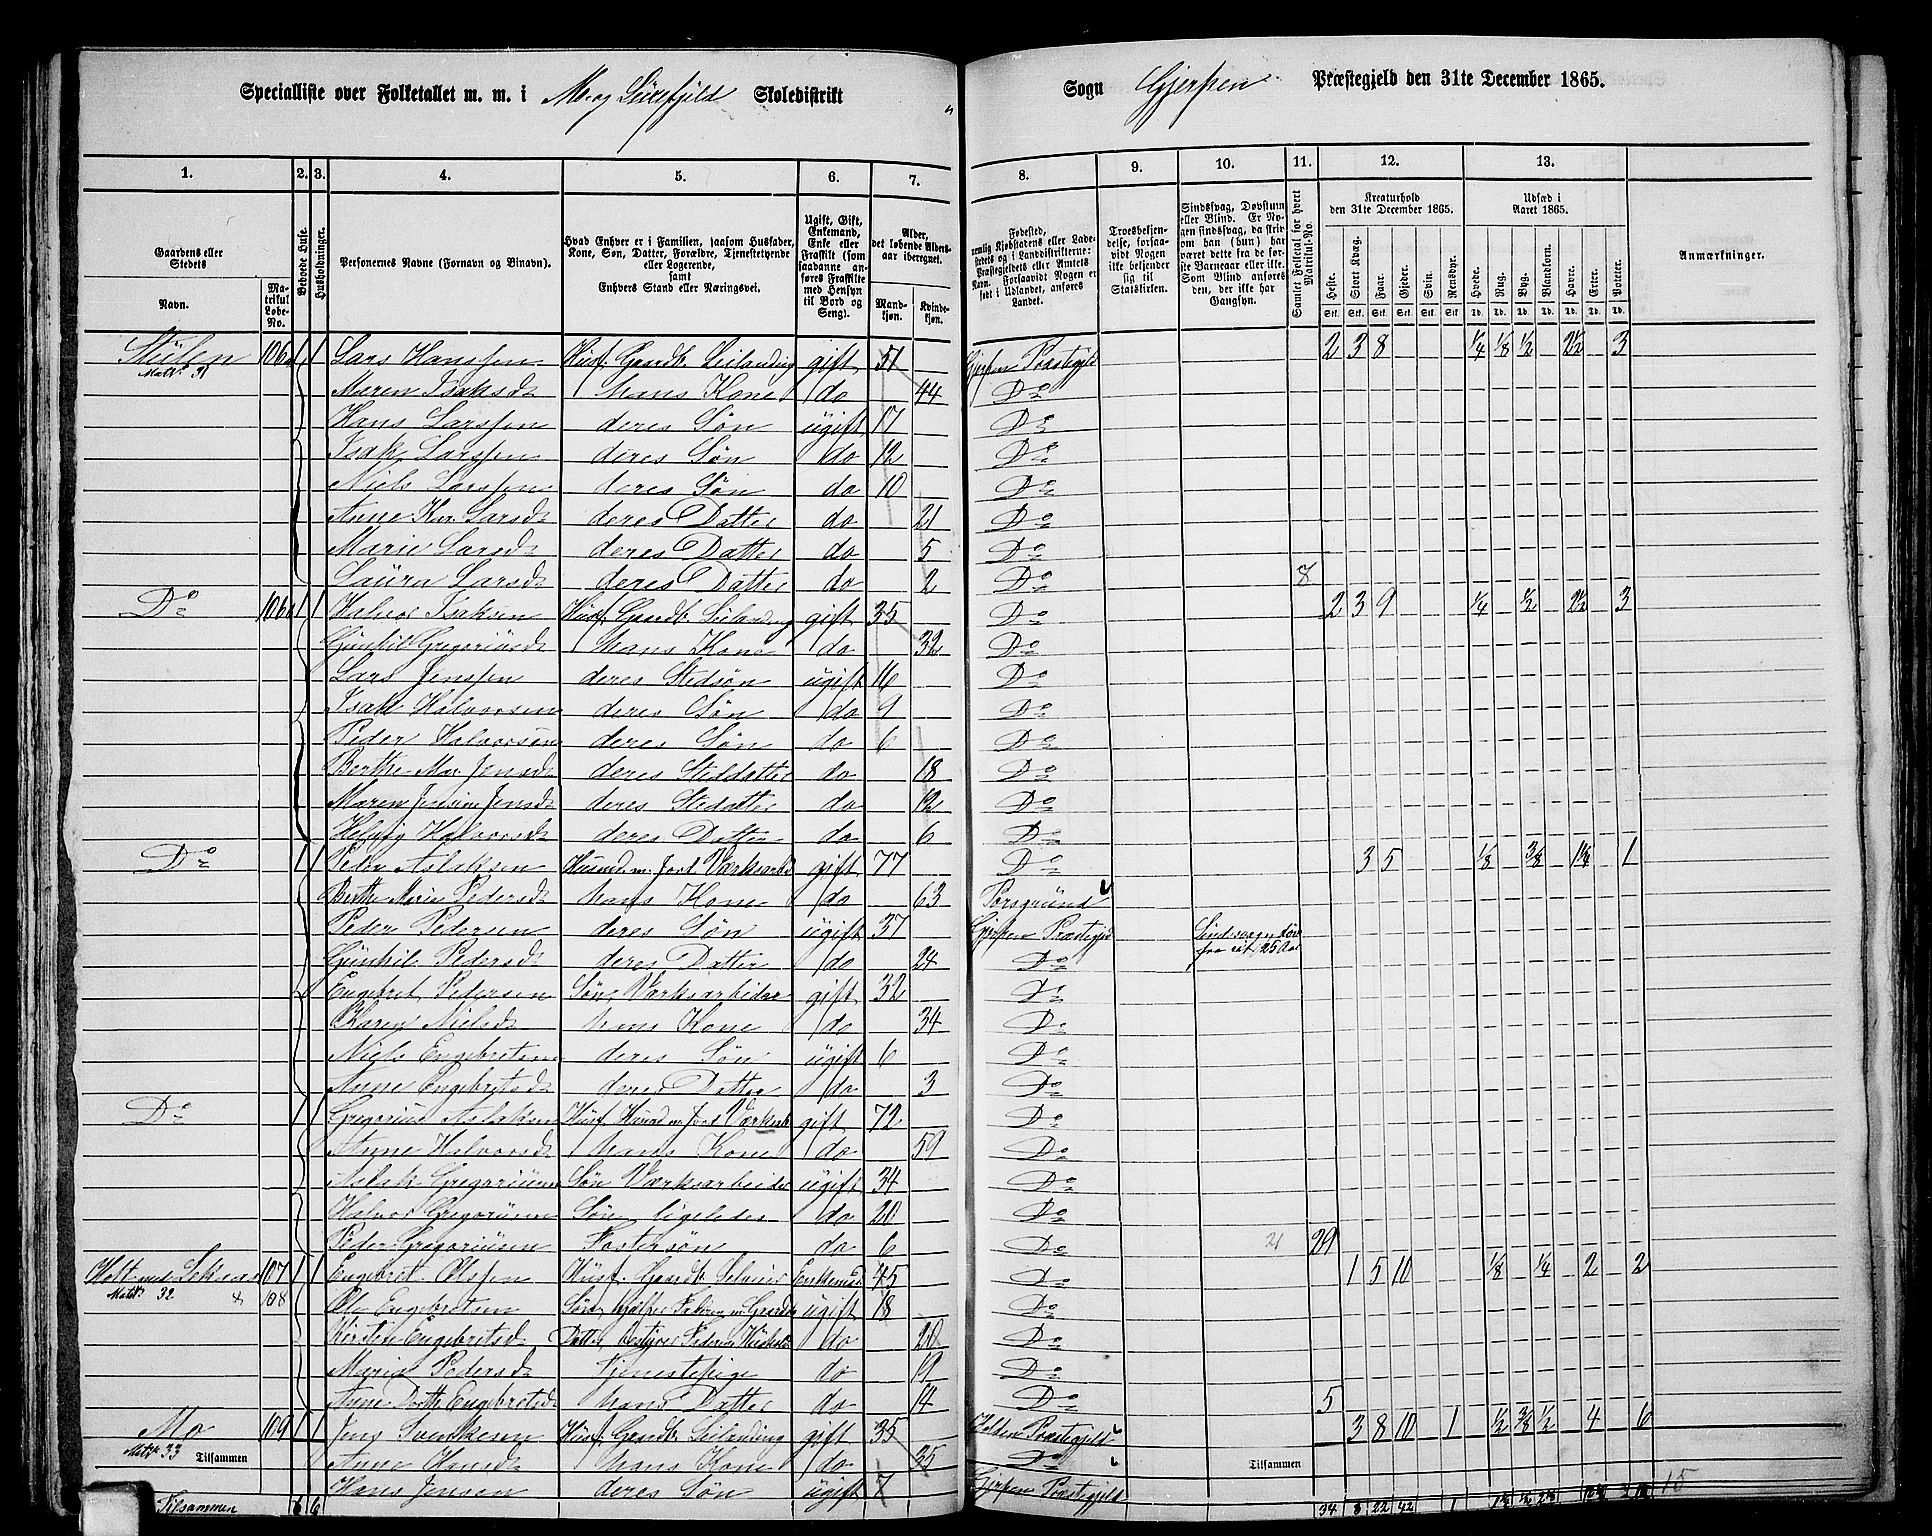 Specialliste over Folketallet m. m. i Mo og Skoledistrikt Sogn Gjerpen Præstegjeld den 31te December 1865.
1. 2. 3. 4. 5. 6. 7. 8. 9. 10. 11. 12. 13.
Gaardens eller Stedets Navn. Matrikul Løbe-No. Beboede Huse. Husholdninger.
Personernes Navne (Fornavn og Binavn).
Hvad Enhver er i Familien, saasom Husfader, Kone, Søn, Datter, Forældre, Tjenestetyende eller Logerende, samt Enhvers Stand eller Næringsvei.
Ugift, Gift, Enkemand, Enke eller Fraskilt (som saadanne anføres Fraskilte med Hensyn til Bord og Seng).
Alder, det løbende Aldersaar iberegnet. Mandkjøn. Kvindekjøn.
Fødested,
Troesbekjendelse, forsaavidt Nogen ikke bekjender sig til Statskirken.
Sindssvag, Døvstum eller Blind. Er Nogen sindssvag, da skrives om han (hun) har været det fra de første Barneaar eller ikke. Som Blind anføres den, der ikke har Gangsyn.
Samlet Folketal for hvert Matrikul-No.
Kreaturhold den 31te December 1865. Heste. Stort Kvæg. Faar. Gjeder. Svin. Rensdyr.
Udsæd i Aaret 1865. Hvede. Rug. Byg. Blandkorn. Havre. Erter. Poteter.
Anmærkninger.
Stulen 106a 1 1 Lars Hanssen Husf. Gaardb. Leilænding gift 51 Gjerpen Præstegjeld 2 3 8 1/4 1/8 1/2 2 1/2 3
Matr. 31 Maren Isaksd. hans Kone do 44 Do
Hans Larssen deres Søn ugift 17 Do
Isak Larssen deres Søn do 12 Do
Niels Larssen deres Søn do 10 Do
Anne Kir. Larsd. deres Datter do 21 Do
Marie Larsd. deres Datter do 5 Do
Laura Larsd. deres Datter do 2 Do 8
Do 106b 1 1 Halvor Isaksen Husf. Gaardb. Leilænding gift 35 Do 2 3 9 1/4 1/2 2 1/2 3
Gunhil Gregoriusd. hans Kone do 32 Do
Lars Jenssen deres Stedsøn ugift 16 Do
Isak Halvorsen deres Søn do 9 Do
Peder Halvorsen deres Søn do 6 Do
Berthe Mar. Jensd. deres Steddatter do 18 Do
Maren Jensine Jensd. deres Stedatter do 12 Do
Helvig Halvorsd. deres Datter do 6 Do
Do 1 1 Peder Aslaksen Husmd. m. Jord Værksarbd. gift 77 Do 3 5 1/8 3/8 1 1/8 1
Berthe Marie Pedersd. hans Kone do 63 Porsgrund
Peder Pedersen deres Søn ugift 37 Gjerpen Præstegjeld
Gunhil Pedersd. deres Datter do 24 Do
Engebret Pedersen Søn, Værksarbeider gift 32 Do
Karen Nielsd. hans Kone do 34 Do
Niels Engebretsen deres Søn ugift 6 Do
Anne Engebretsd. deres Datter do 3 Do
Do 1 1 Gregorius Aslaksen Husf. Husmd. m. Jord Værksarb. gift 72 Do
Anne Halvorsd. hans Kone do 59 Do
Aslak Gregoriusen Søn Værksarbeider ugift 34 Do
Halvor Gregoriusen Søn ligeledes do 20 Do
Peder Gregoriusen Fostersøn do 6 Do 21 29
Holt med 107 1 1 Engebret Olssen Husf. Gaardb. Selveier Enkemd. 45 Do 1 5 10 1/8 1/4 2 2
Matr. 32 & 108 Ole Engebretsen Søn, hjælper Faderen m. Gaarden ugift 18 Do
Kirstine Engebretsd. Datter, bestyrer Faderens do 20 Do
Maria Pedersd. Tjenestepige do 19 Do
Anne Dorth. Engebretsd. hans Datter do 14 Do 5
Mo 109 1 1 Jens Svenkesen Husf. Gaardb. Leilænding gift 35 Holden Præstegjeld 3 8 10 1 1/2 3/8 1/2 4 6
Matr. 33 Tilsammen Anne Hansd. hans Kone do 35 Do Tilsammen
Hans Jensen deres Søn ugift 7 Gjerpen Præstegjeld
Tilsammen 6 6 34 8 22 42 1 15